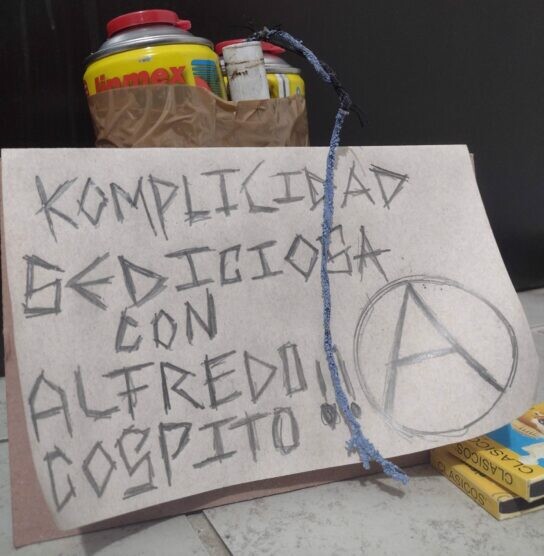 Jinmex
KOMPLICIDAD
SEDICIOSA
CON
ALFREDO!!
COSPITO
A
CLASICOS
CLASICOS